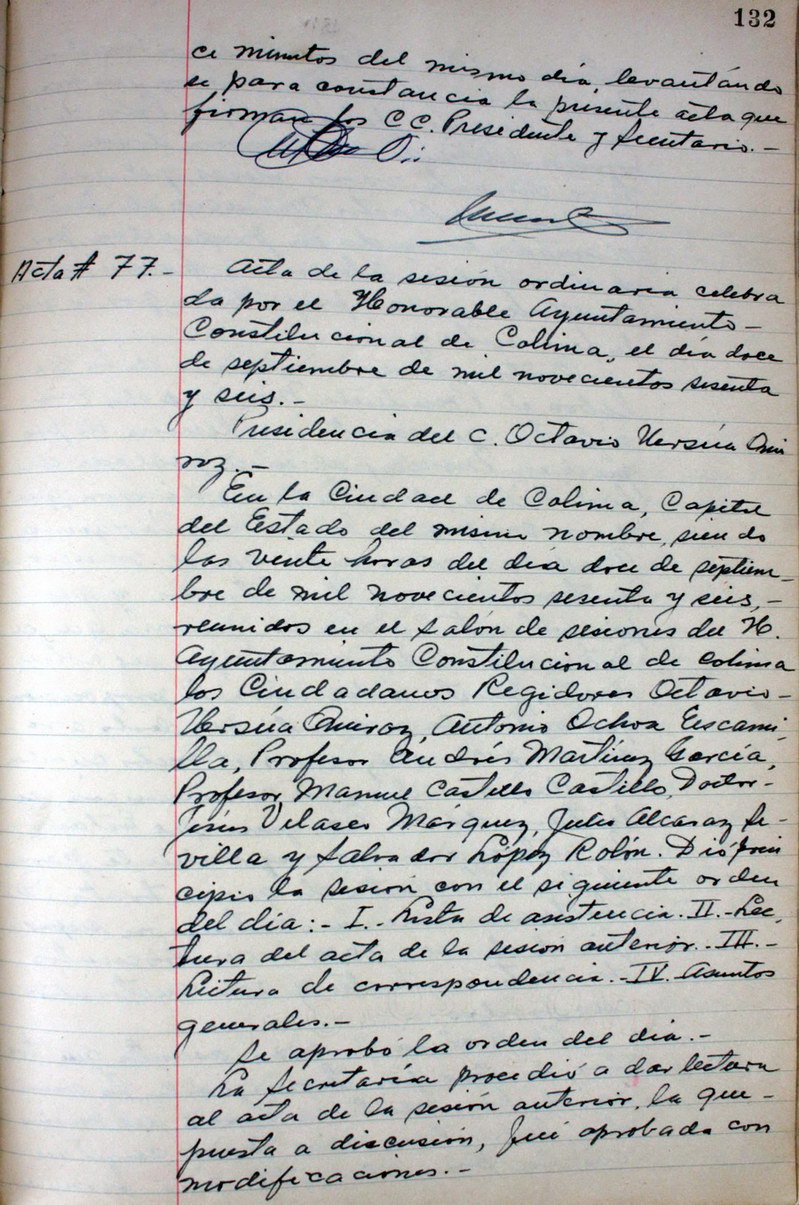 132
ce minutos del mismo día, levantándo
se para constancia la presente acta que
firman los C C. Presidente y Secretario.-
Acta # 77.-
Acta de la sesión ordinaria celebra
da por el Honorable Ayuntamiento-
Constitucional de Colima, el día doce
de septiembre de mil novecientos sesenta
y seis.-
Presidencia del C. Octavio Ursúa Qui
roz.-
En la Ciudad de Colima, Capital
del Estado del mismo nombre, siendo
las veinte horas del día doce de septiem-
bre de mil novecientos sesenta y seis,-
reunidos en el salón de sesiones del H.
Ayuntamiento Constitucional de Colima
los Ciudadanos Regidores Octavio-
Ursúa Quiroz, Antonio Ochoa Escami-
lla, Profesor Andrés Martínez García,
Profesor Manuel Castell Castillo, Doctor-
Jesús Velasco Márquez, Julio Alcaraz Se-
villa y Salvador López Rolón. Dió prin
cipio la sesión con el siguiente orden
del día:- I.- Lista de asistencia. II.- Lec-
tura del acta de la sesión anterior.- III.-
Lectura de correspondencia.- IV.- Asuntos
generales.-
Se aprobó la orden del día.-
La Secretaría procedió a dar lectura
al acta de la sesión anterior, la que-
puesta a discusión, fué aprobada con
modificaciones.-